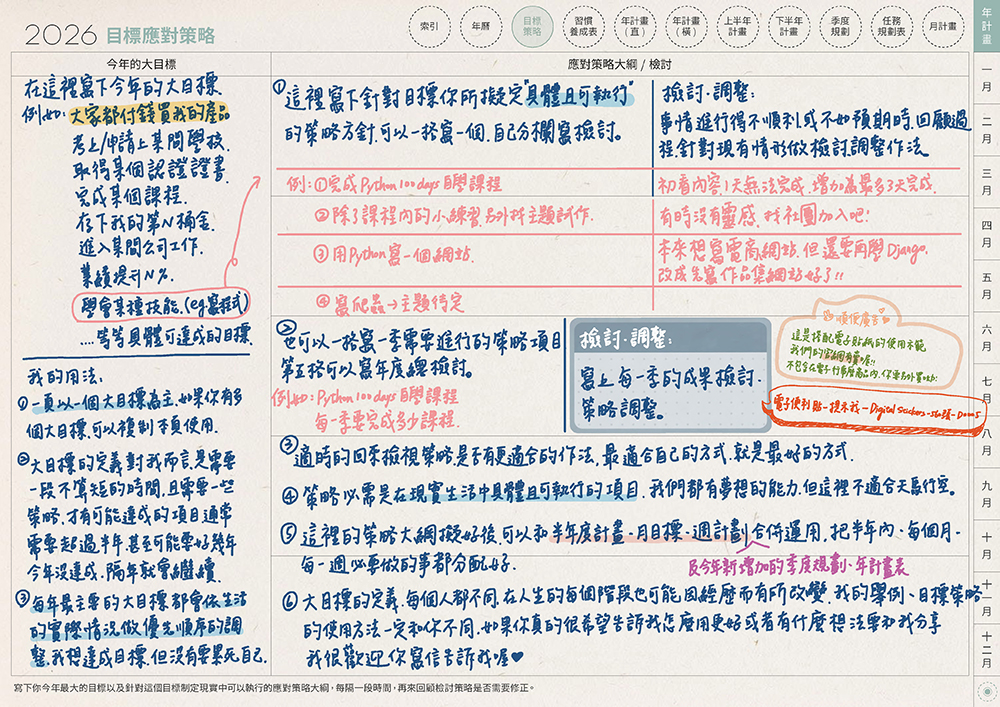 2026 目標應對策略
索引
年曆
目標
策略
習慣
養成表
年計畫
(直)
年計畫
(橫)
上半年
計畫
下半年
計畫
季度
規劃
任務
規劃表
月計畫
年計畫
一月
二月
三月
四月
五月
六月
七月
八月
九月
十月
十一月
十二月
今年的大目標
在這裡寫下今年的大目標.
例如: 大家都付錢買我的產品
考上/申請上某間學校.
取得某個認證證書.
完成某個課程.
存下我的第N桶金.
進入某間公司工作.
業績提升N%.
學會某種技能.(eg.寫程式)
....等等具體可達成的目標.
我的用法:
① 一頁以一個大目標為主.如果你有多
個大目標,可以複製本頁使用.
② 大目標的定義對我而言,是需要
一段不算短的時間,且需要一些
策略.才有可能達成的項目通常
需要超過半年.甚至可能要好幾年
今年沒達成.隔年就會繼續.
③ 每年最主要的大目標都會依生活
的實際情況做優先順序的調
整.我想達成目標.但沒有要累死自己.
應對策略大綱 / 檢討
① 這裡寫下針對目標你所擬定"具體且可執行"
的策略方針,可以一格寫一個.自己分欄寫檢討。
檢討·調整:
事情進行得不順利或不如預期時.回顧過
程.針對現有情形做檢討.調整作法.
例: ①完成Python 100 days自學課程
初看內容1天無法完成.增加為最多3天完成.
②除了課程內的小練習另外找主題試作.
有時沒有靈感.找社團加入吧!
③用Python寫一個網站.
本來想寫電商網站.但還要再學Django.
改成先寫作品集網站好了!!
④寫爬蟲→主題待定
② 也可以一格寫一季需要進行的策略項目
第五格可以寫年度總檢討。
例如:Python 100 days自學課程
每一季要完成多少課程.
檢討·調整:
寫上每一季的成果檢討.
策略調整。
順便廣告
這是搭配電子貼紙的使用示範
我們的官網有賣喔!!
不包含在電子行事曆商品內.你要另外買呦:
電子便利貼-提示我-Digital Stickers-
③ 適時的回來檢視策略是否有更適合的作法.最適合自己的方式.就是最好的方式.
④ 策略必需是在現實生活中具體且可執行的項目.我們都有夢想的能力.但這裡不適合天馬行空。
⑤ 這裡的策略大綱擬好後.可以和半年度計畫-月目標-週計劃合併運用.把半年內、每個月、
每一週必要做的事都分配好.
及今年新增加的季度規劃、年計畫表
⑥ 大目標的定義.每個人都不同.在人生的每個階段也可能因經歷而有所改變.我的舉例、目標策略
的使用方法一定和你不同.如果你真的很希望告訴我怎麼用更好或者有什麼想法要和我分享
我很歡迎你寫信告訴我喔♥
寫下你今年最大的目標以及針對這個目標制定現實中可以執行的應對策略大綱，每隔一段時間，再來回顧檢討策略是否需要修正。